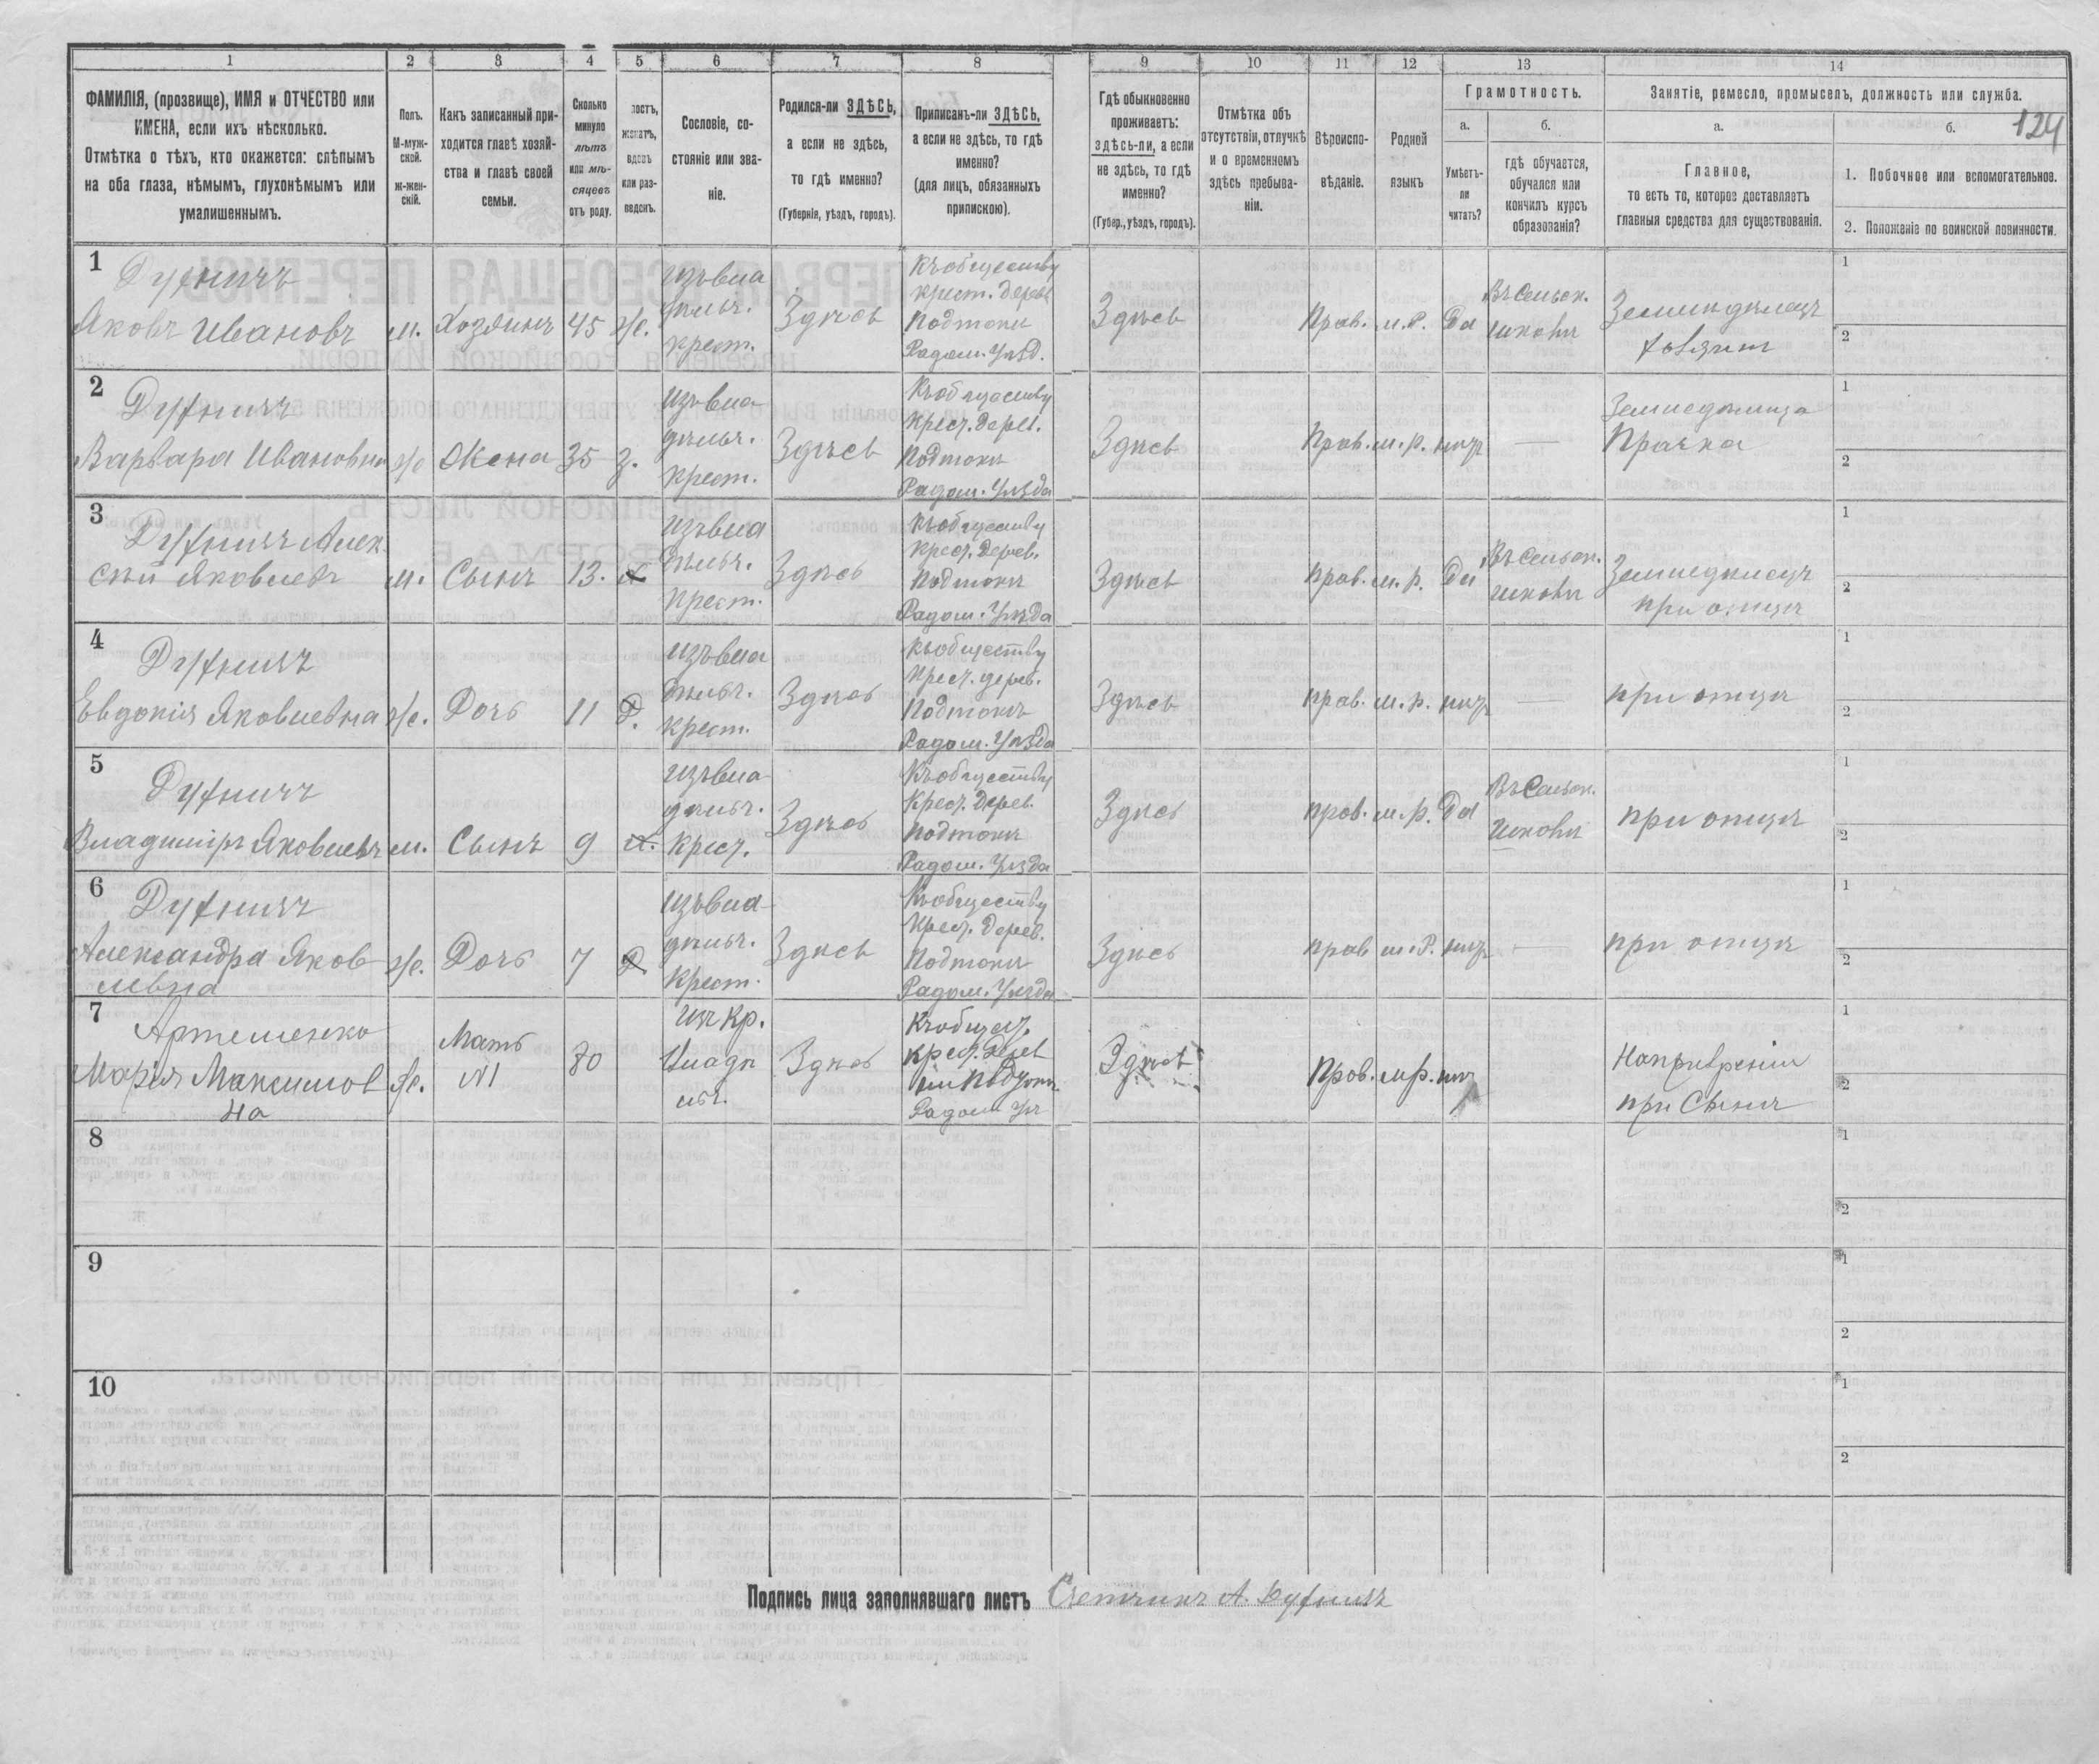 1 2 3 4 5 6 7 8 9 10 11 12 13 14
124
ФАМИЛІЯ, (прозвище), ИМЯ и ОТЧЕСТВО или
ИМЕНА, если ихъ нѣсколько.
Отмѣтка о тѣхъ, кто окажется: слѣпымъ
на оба глаза, нѣмымъ, глухонѣмымъ или
умалишеннымъ.
Полъ.
М-муж-
ской.
ж-жен-
скій.
Какъ записанный при-
ходится главѣ хозяй-
ства и главѣ своей
семьи.
Сколько
минуло
лѣтъ
или мѣ-
сяцевъ
отъ роду.
лостъ,
женатъ,
вдовъ
или раз-
веденъ.
Сословіе, со-
стояніе или зва-
ніе.
Родился-ли ЗДѢСЬ,
а если не здѣсь,
то гдѣ именно?
(Губернія, уѣздъ, городъ).
Приписанъ-ли ЗДѢСЬ,
а если не здѣсь, то гдѣ
именно?
(для лицъ, обязанныхъ
припискою).
Гдѣ обыкновенно
проживаетъ:
здѣсь-ли, а если
не здѣсь, то гдѣ
именно?
(Губер., уѣздъ, городъ).
Отмѣтка объ
отсутствіи, отлучкѣ
и о временномъ
здѣсь пребыва-
ніи.
Вѣроиспо-
вѣданіе.
Родной
языкъ
Грамотность.
а.
Умѣетъ-
ли
читать?
б.
гдѣ обучается,
обучался или
кончилъ курсъ
образованія?
Занятіе, ремесло, промыселъ, должность или служба.
а.
Главное,
то есть то, которое доставляетъ
главныя средства для существованія.
б.
1. Побочное или вспомогательное.
2. Положеніе по воинской повинности.
1
Яковъ Ивановъ
м.
Хозяинъ
45
ж.
изъ вла
дѣльч.
крест.
Здѣсь
Къ обществу
крест. дерев.
Радом. Уѣзд.
Здѣсь
Прав.
м. р.
Да
Въ сельск.
школѣ
Земледѣлецъ
1
2
2
Варвара Ивановна
ж
Жена
35
З.
изъ вла
дѣльч.
крест.
Здѣсь
Къ обществу
Крест. дерев.
Радом. Уѣзда
Здѣсь
Прав.
м. р.
нѣтъ
—
Прачка
1
2
3
Алек
сѣй Яковлевъ
м.
Сынъ
13.
изъ вла
дѣльч.
крест.
Здѣсь
Къ обществу
Крест. дерев.
Радом. Уѣзда
Здѣсь
прав.
м. р.
Да
Въ сельск.
школѣ
Земледѣлецъ
при отцѣ
1
2
4
Евдокія Яковлевна
ж.
Дочь
11
Д.
изъ вла
дѣльч.
крест.
Здѣсь
Къ обществу
Крест. дерев.
Радом. Уѣзда
Здѣсь
прав.
м. р.
нѣтъ
—
при отцѣ
1
2
5
Владиміръ Яковлевъ
м.
Сынъ
9
изъ вла
дѣльч.
крест.
Здѣсь
Къ обществу
Крест. дерев.
Радом. Уѣзда
Здѣсь
прав.
м. р.
Да
Въ сельск.
школѣ
при отцѣ
1
2
6
Александра Яков
левна
ж.
Дочь
7
Д
изъ вла
дѣльч.
крест.
Здѣсь
Къ обществу
Крест. дерев.
Радом. Уѣзда
Здѣсь
прав
м. р.
нѣтъ
—
при отцѣ
1
2
7
Артеменко
Марія Максимов
на
ж.
Мать
№1
80
изъ кр.
владѣ
льч.
Здѣсь
Къ общест.
крест. дерев
Радом Уѣ
Здѣсь
Прав.
м.р.
нѣтъ
при Сынѣ
1
2
8
1
2
9
1
2
10
1
2
Подпись лица заполнявшаго листъ Счетчикъ А.